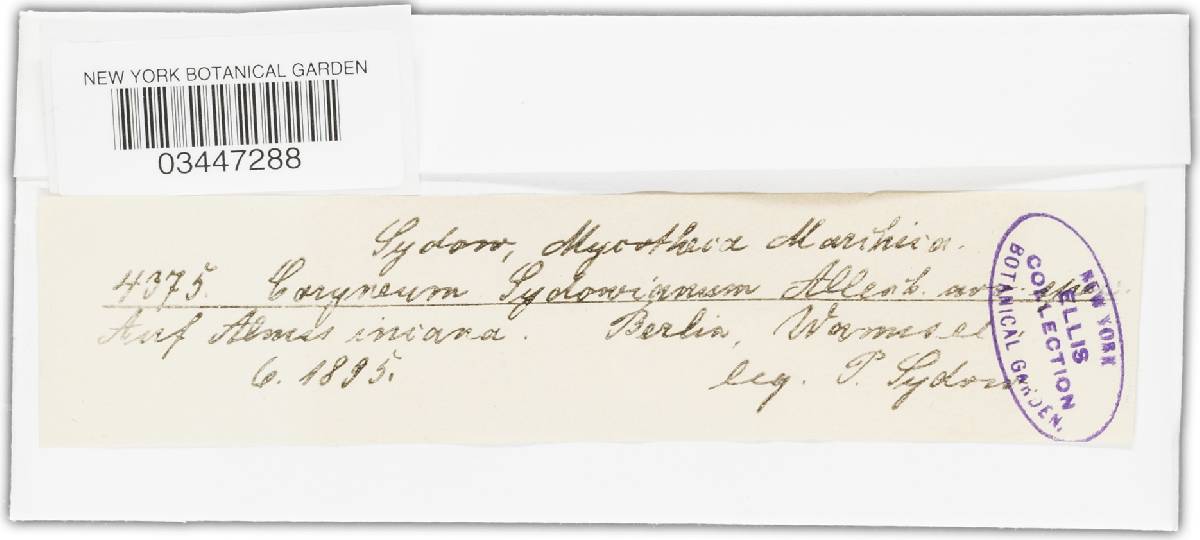 NEW YORK BOTANICAL GARDEN
03447288
Sydow, Mycotheca Marchica.
4375. Coryneum Sydowianum Allesch. nov. spec.
Auf Alnus incana. Berlin, Wannsee
6. 1895.
leg. P. Sydow
NEW YORK
ELLIS
COLLECTION
BOTANICAL GARDEN.